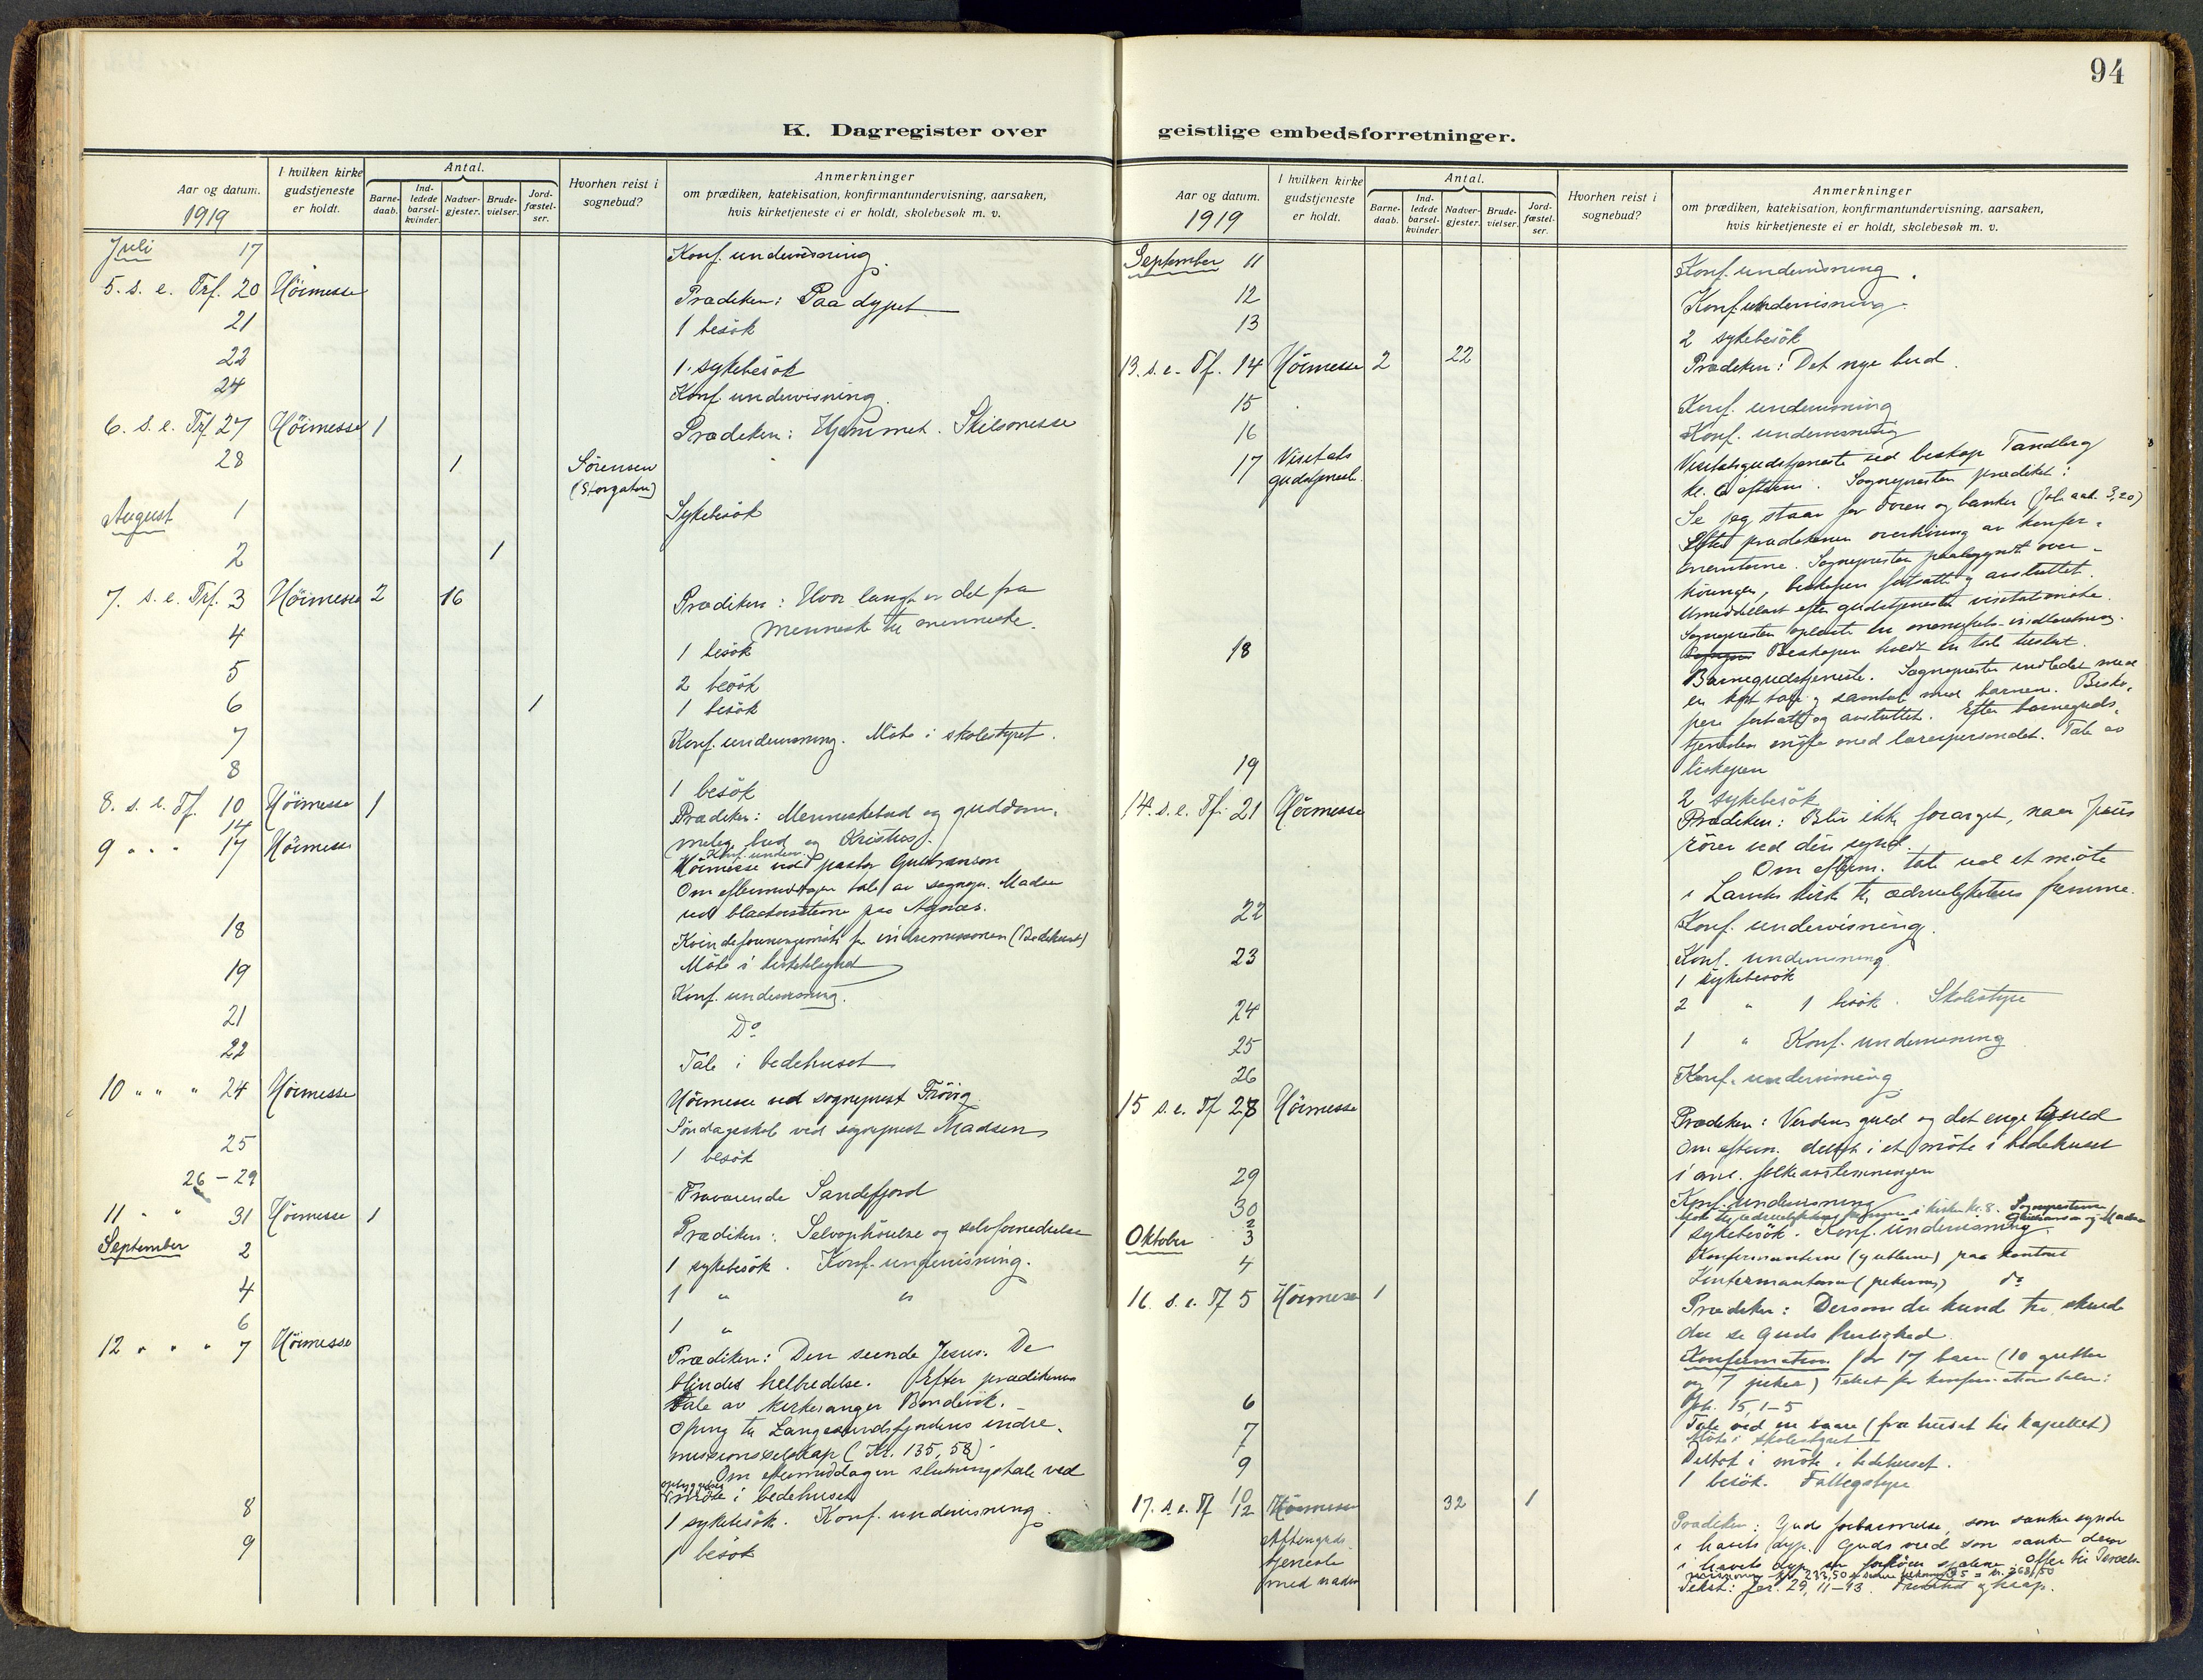 94
K. Dagregister over
Aar og datum.
1919
I hvilken kirke gudstjeneste er holdt.
Antal.
Barne-daab.
Ind-ledede barsel-kvinder.
Nadver-gjester.
Brude-vielser.
Jord-fæstel-ser.
Hvorhen reist i sognebud?
Anmerkninger
om prædiken, katekisation, konfirmantundervisning, aarsaken,
hvis kirketjeneste ei er holdt, skolebesøk m. v.
Juli 17 Konf. undervisning.
5. s. e. Trf. 20 Höimesse Prædiken: Paa dypet
21 1 besök
22 1 sykebesök
24 Konf. undervisning.
6. s. e. Trf. 27 Höimesse 1 Prædiken: Hjemmet. Skilsmesse
28 1 Sörensen
(Storgaten)
August 1 Sykebesök
2 1
7. s. e. Trf. 3 Höimesse 2 16 Prædiken: Hvor langt er det fra
menneske til menneske.
4 1 besök
5 2 besök
6 1 1 besök
7 Konf. undervisning. Möte i skolestyret.
8 1 besök
8. s. e. Tf. 10 Höimesse 1 Prædiken: Menneskebud og guddom-
melig bud og Kristus.
14 Konf. underv.
9 " " " 17 Höimesse Höimesse ved pastor Gulbranson
Om eftermiddagen tale av sogn. Madsen
ved paa Agnæs.
18 Kvindeforeningsmöte for indremissionen (Bedehuset)
Möte i
19 Konf. undervisning.
21 Do
22 Tale i bedehuset
10 " " " 24 Höimesse Höimesse ved sogneprest Frövig
Söndagsskole ved sogneprest Madsen
25 1 besök
26 - 29 Fraværende Sandefjord
11 " " 31 Höimesse 1 Prædiken: Selvophöielse og selvfornedrelse
September 2 1 sykebesök. Konf. undervisning.
4 1 " "
6 1 "
12 " " " 7 Höimesse Prædiken: Den seende Jesus. De
blindes helbredelse. Efter prædikenen
Tale av kirkesanger Bondevik. -
Ofring til Langesundsfjordens indre-
missionsselskap (Kr. 135,58).
Om eftermiddagen slutningstale ved
möte i bedehuset
8 1 sykebesök. Konf. undervisning.
9 1 besök
geistlige embedsforretninger.
Aar og datum.
1919
I hvilken kirke gudstjeneste er holdt.
Antal.
Barne-daab.
Ind-ledede barsel-kvinder.
Nadver-gjester.
Brude-vielser.
Jord-fæstel-ser.
Hvorhen reist i sognebud?
Anmerkninger
om prædiken, katekisation, konfirmantundervisning, aarsaken,
hvis kirketjeneste ei er holdt, skolebesøk m. v.
September 11 Konf. undervisning.
12 Konf. undervisning.
13 2 sykebesök
13. s. e. Tf. 14 Höimesse 2 22 Prædiken: Det nye bud.
15 Konf. undervisning
16 Konf. undervisning
17 Visitats gudstjeneste Visitatsgudstjeneste ved biskop Tandberg
kl. 6 efterm. Sognepresten prædiket:
Se jeg staar for dören og banker (Joh. aab. 3,20)
Efter prædikenen overhöring av konfir-
manterne. Sognepresten paabegyndt over-
höringen, biskopen fortsatte og avsluttet.
Umiddelbart efter gudstjenesten visitatsmöte.
Sognepresten oplæste en menighets-indberetning.
Biskopen holdt en tale tilslut.
18 Barnegudstjeneste. Sognepresten indledet med
en kort tale og samtale med barnene. Bisko-
pen fortsatte og avsluttet. Efter barneguds-
tjenesten möte med lærerpersonalet. Tale av
biskopen
19 2 sykebesök
14. s. e. Tf. 21 Höimesse Prædiken: Bliv ikke forarget, naar Jesus
rörer ved din synd.
Om efterm. tale ved et möte
i kirke til ædruelighetens fremme.
22 Konf. undervisning.
23 Konf. undervisning
1 sykebesök
24 2 " 1 besök. Skolestyre
25 1 " Konf. undervisning
26 Konf. undervisning
15 s. e. Tf 28 Höimesse Prædiken: Verdens guld og det enge
Om efterm. deltat i et möte i bedehuset
i anl. folkeavstemningen
29 Konf. undervisning
30 i kirken kl. 8. Sognepresterne
Madsen
Oktober 2 sykebesök. Konf. undervisning.
3 Konfirmanterne (gutterne) paa kontoret
4 Konfirmanterne (pikerne) do
16. s. e. Tf 5 Höimesse 1 Prædiken: Dersom du kunde tro, skulde
du se Guds herlighed.
Konfirmation for 17 barn (10 gutter
og 7 piker) Tekst for konfirmationstalen:
15, 1-5
6 Tale ved en baare (fra huset til kapellet)
7 Möte i skolestyret
Deltat i möte i bedehuset.
9 1 besök. Fattigstyre
10
17. s. e. Tf 12 Höimesse 32 1 Prædiken: Guds forbarmelse, som sænker synde
Aftenguds- i havets dyp. Guds vred som sænker dem
tjeneste i havets dyp Offer til Israels-
med nadv. missionen 233,50 = kr. 268,50
Tekst: Jer. 29, 11-13. Fremtid og haap.